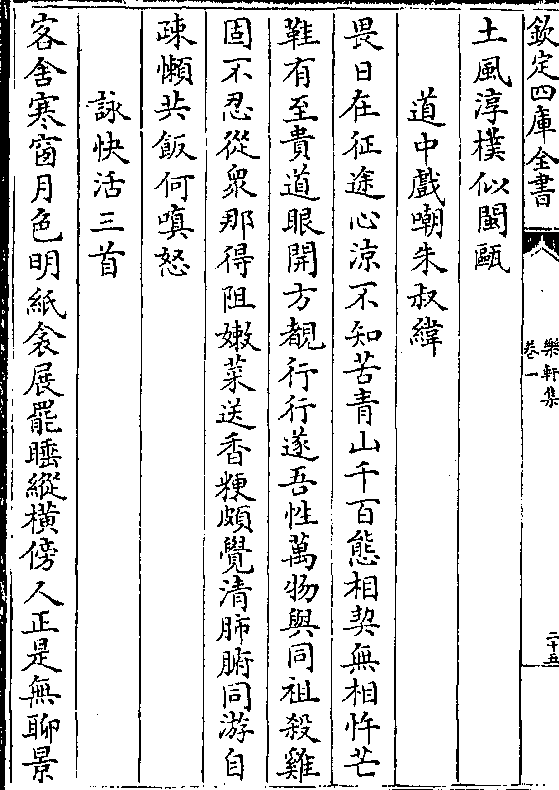 欽定四庫全書
樂軒集
卷一
二十五
土風淳樸似閩甌
道中戲嘲朱叔緯
畏日在征途心涼不知苦青山千百態相契無相忤芒
鞋有至貴道眼開方覩行行遂吾性萬物與同祖殺雞
固不忍從衆那得阻嫩菜送香粳頗覺清肺腑同游自
疎懶共飯何嗔怒
詠快活三首
客舍寒窗月色明紙衾展罷睡縱橫傍人正是無聊景